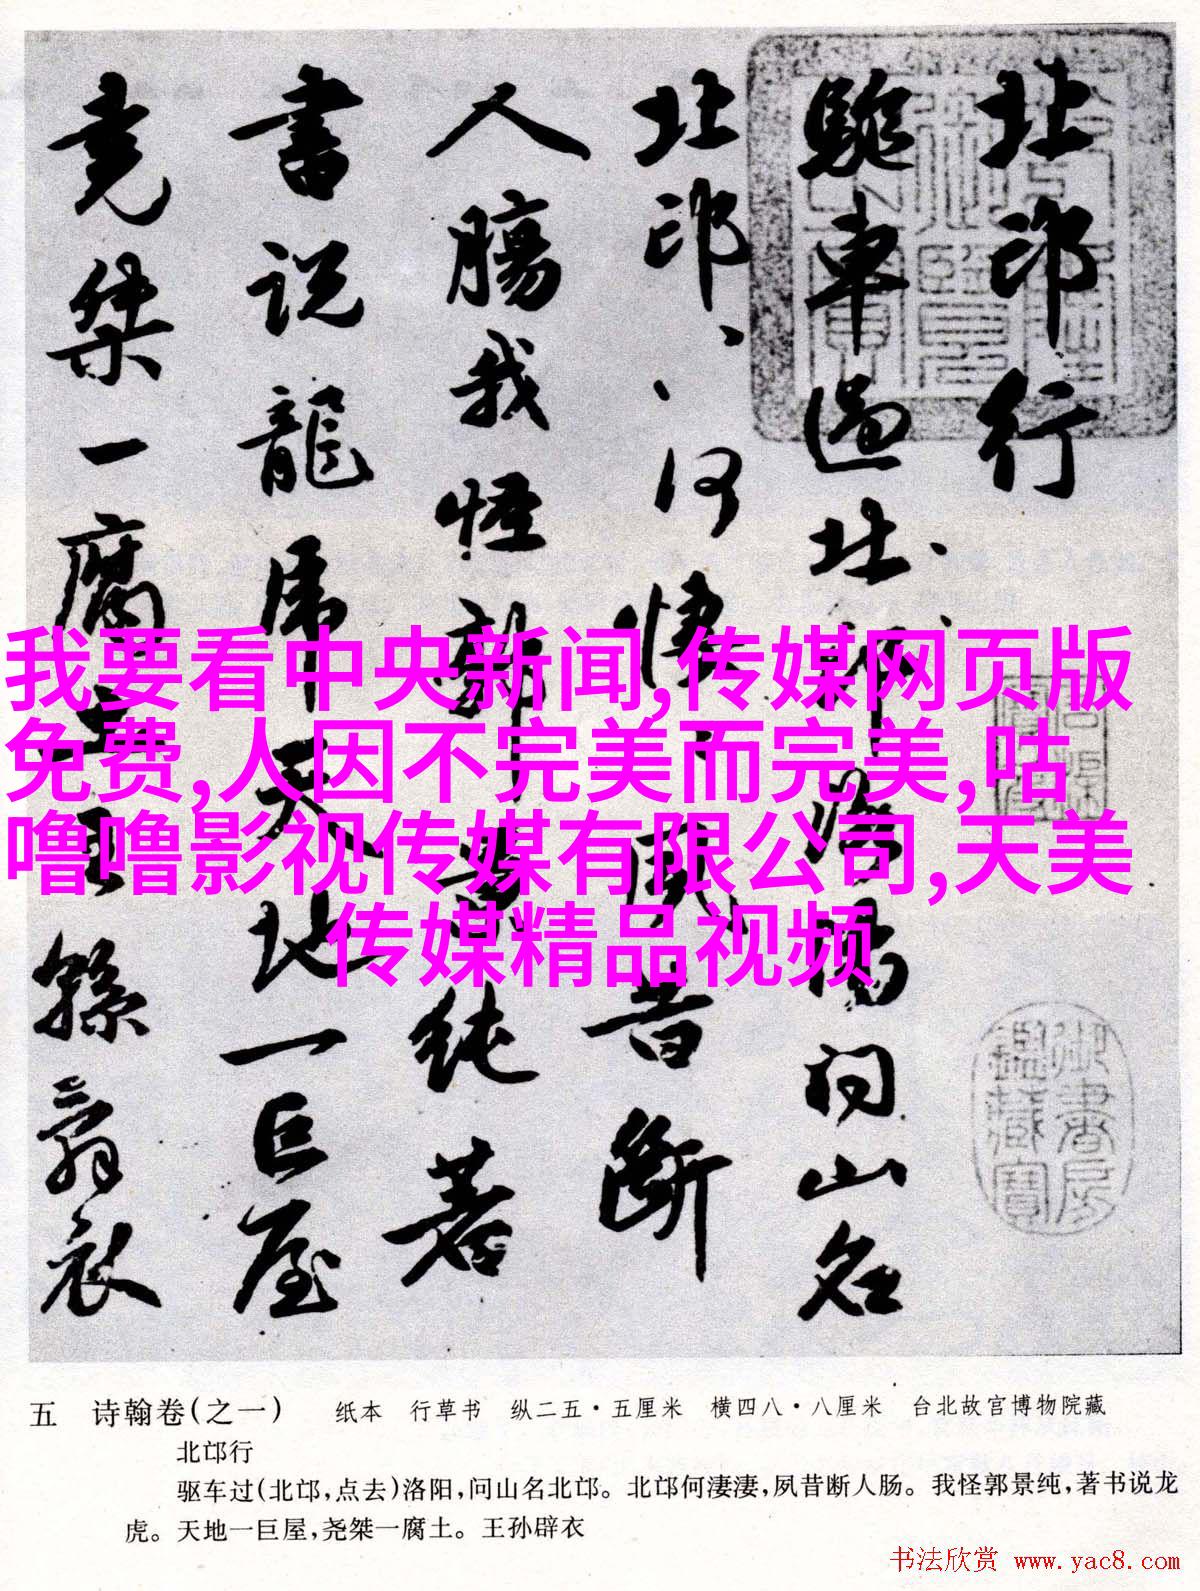 北邙行
驅車過北邙
洛陽問山名
北邙、、何悽、風昔斷
人腸我怪郭景纯著
書说龍虎天地一巨屋
堯桀一腐土王孫辟衣
我要看中央新闻,传媒网页版
免费,人因不完美而完美,咕
噜噜影视传媒有限公司,天美
传媒精品视频
御書房鑑藏寶
五 诗翰卷(之一) 纸本 行草书 纵二五·五厘米 横四八·八厘米 台北故宫博物院藏
北邙行
驱车过(北邙,点去)洛阳,问山名北邙。北邙何淒淒,夙昔断人肠。我怪郭景纯,著书说龙
虎。天地一巨屋,尧桀一腐土。王孙辟衣
书法欣赏 www.yac8.com